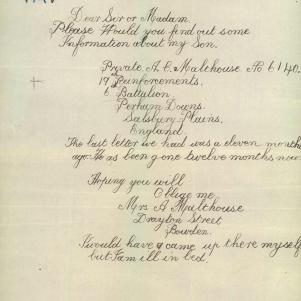 Dear Sir or Madam
Please Would you find out some
Information about my Son.
Private A. C. Malthouse No 6140.
19th Reinforcements.
6th Battalion
Perham Downs.
Salsbury-Plains,
England
The last letter we had was a eleven months
ago. He as been gone twelve months now
Hoping you will
Oblige me
Mrs A Malthouse
Drayton Street
Bowden.
I would have came up there myself
but I am ill in bed.